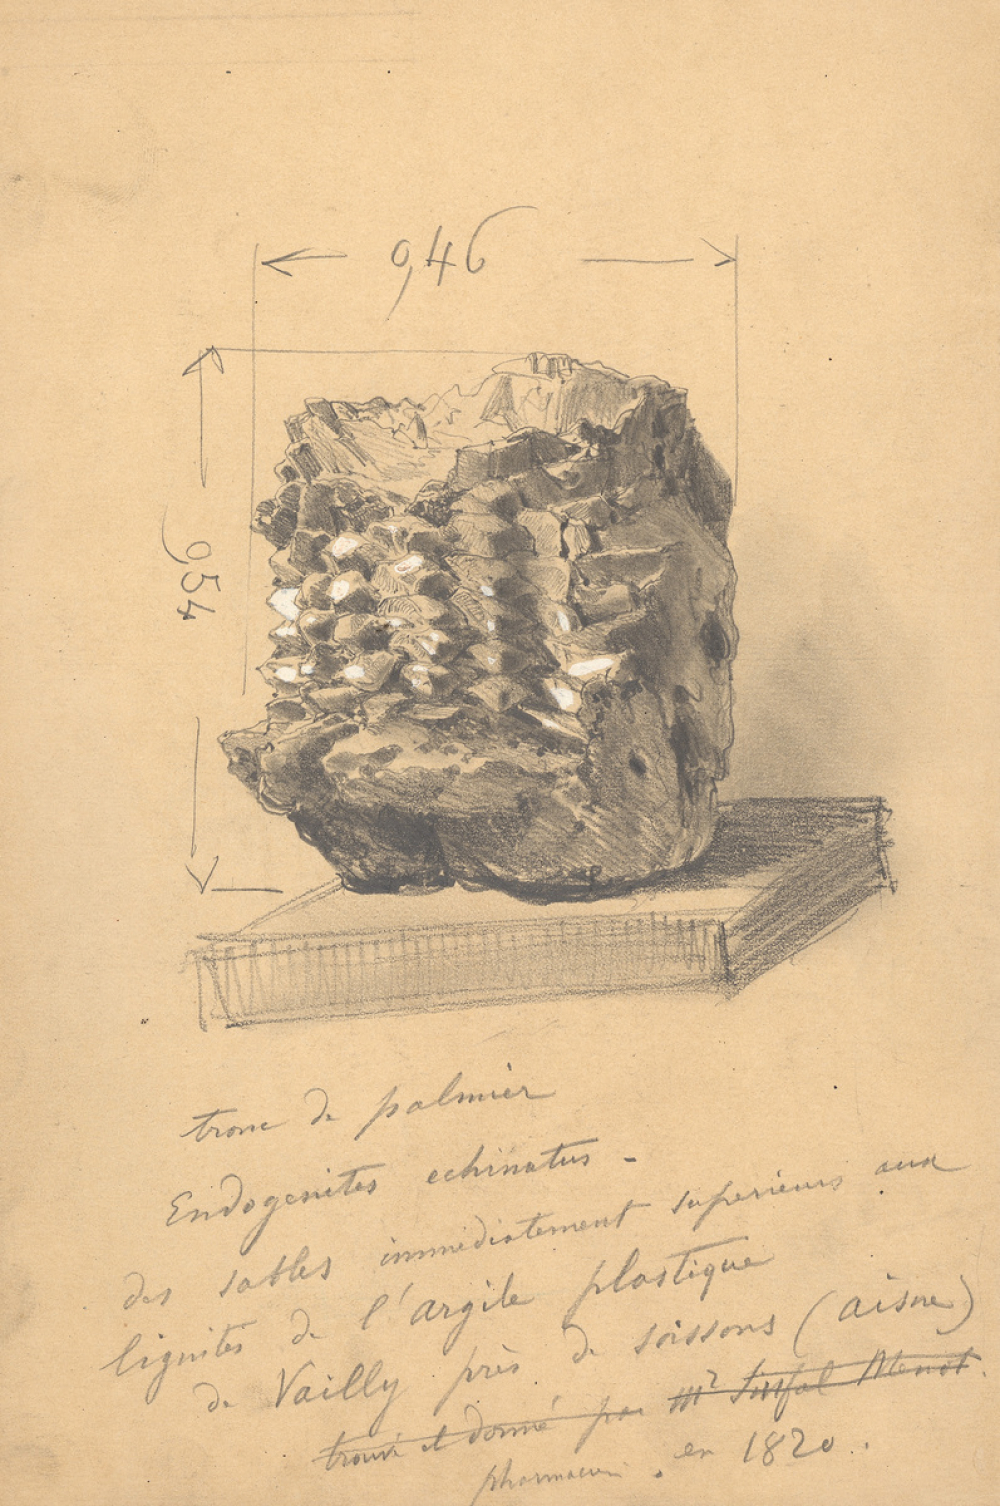 0,46
0,54
tronc de palmier
Endogenites echinatus -
des sables immédiatement superieurs aux
lignites de l'argile plastique
de Vailly près de soissons (aisne)
trouvé et donné par mr
pharmacien . en 1820 .